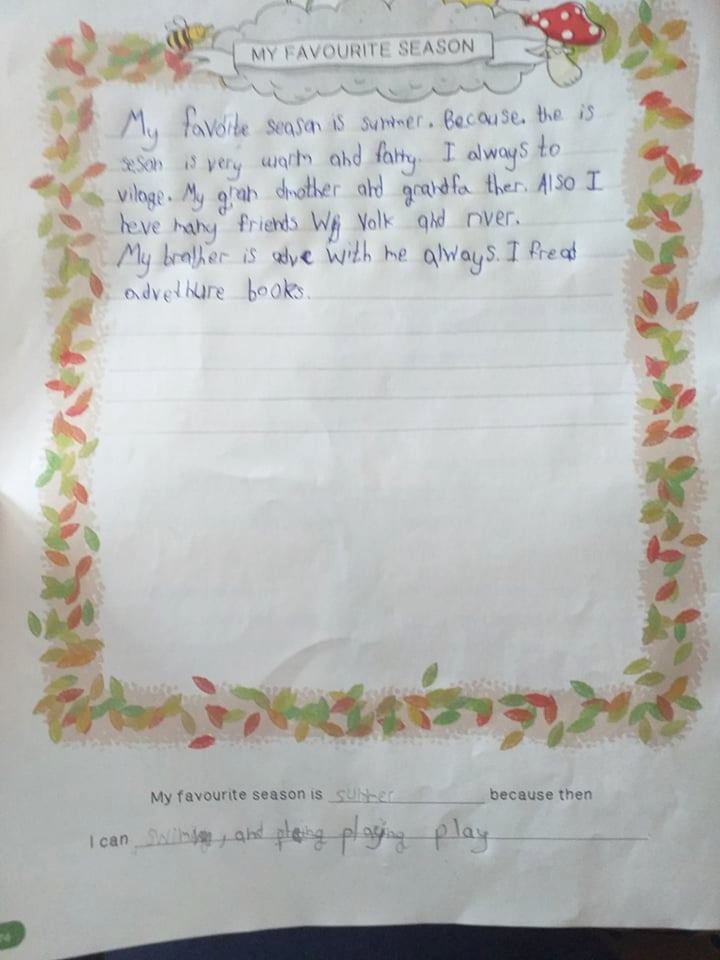 MY FAVOURITE SEASON
My favoite season is summer. Because. the is
seson is very warm and fanny. I always to
vilage. My gran dmother and grandfa ther. Also I
heve many friends We Volk and river.
My brather is adve with me always. I fread
advethure books.
My favourite season is summer because then
I can swim, and playing play
74